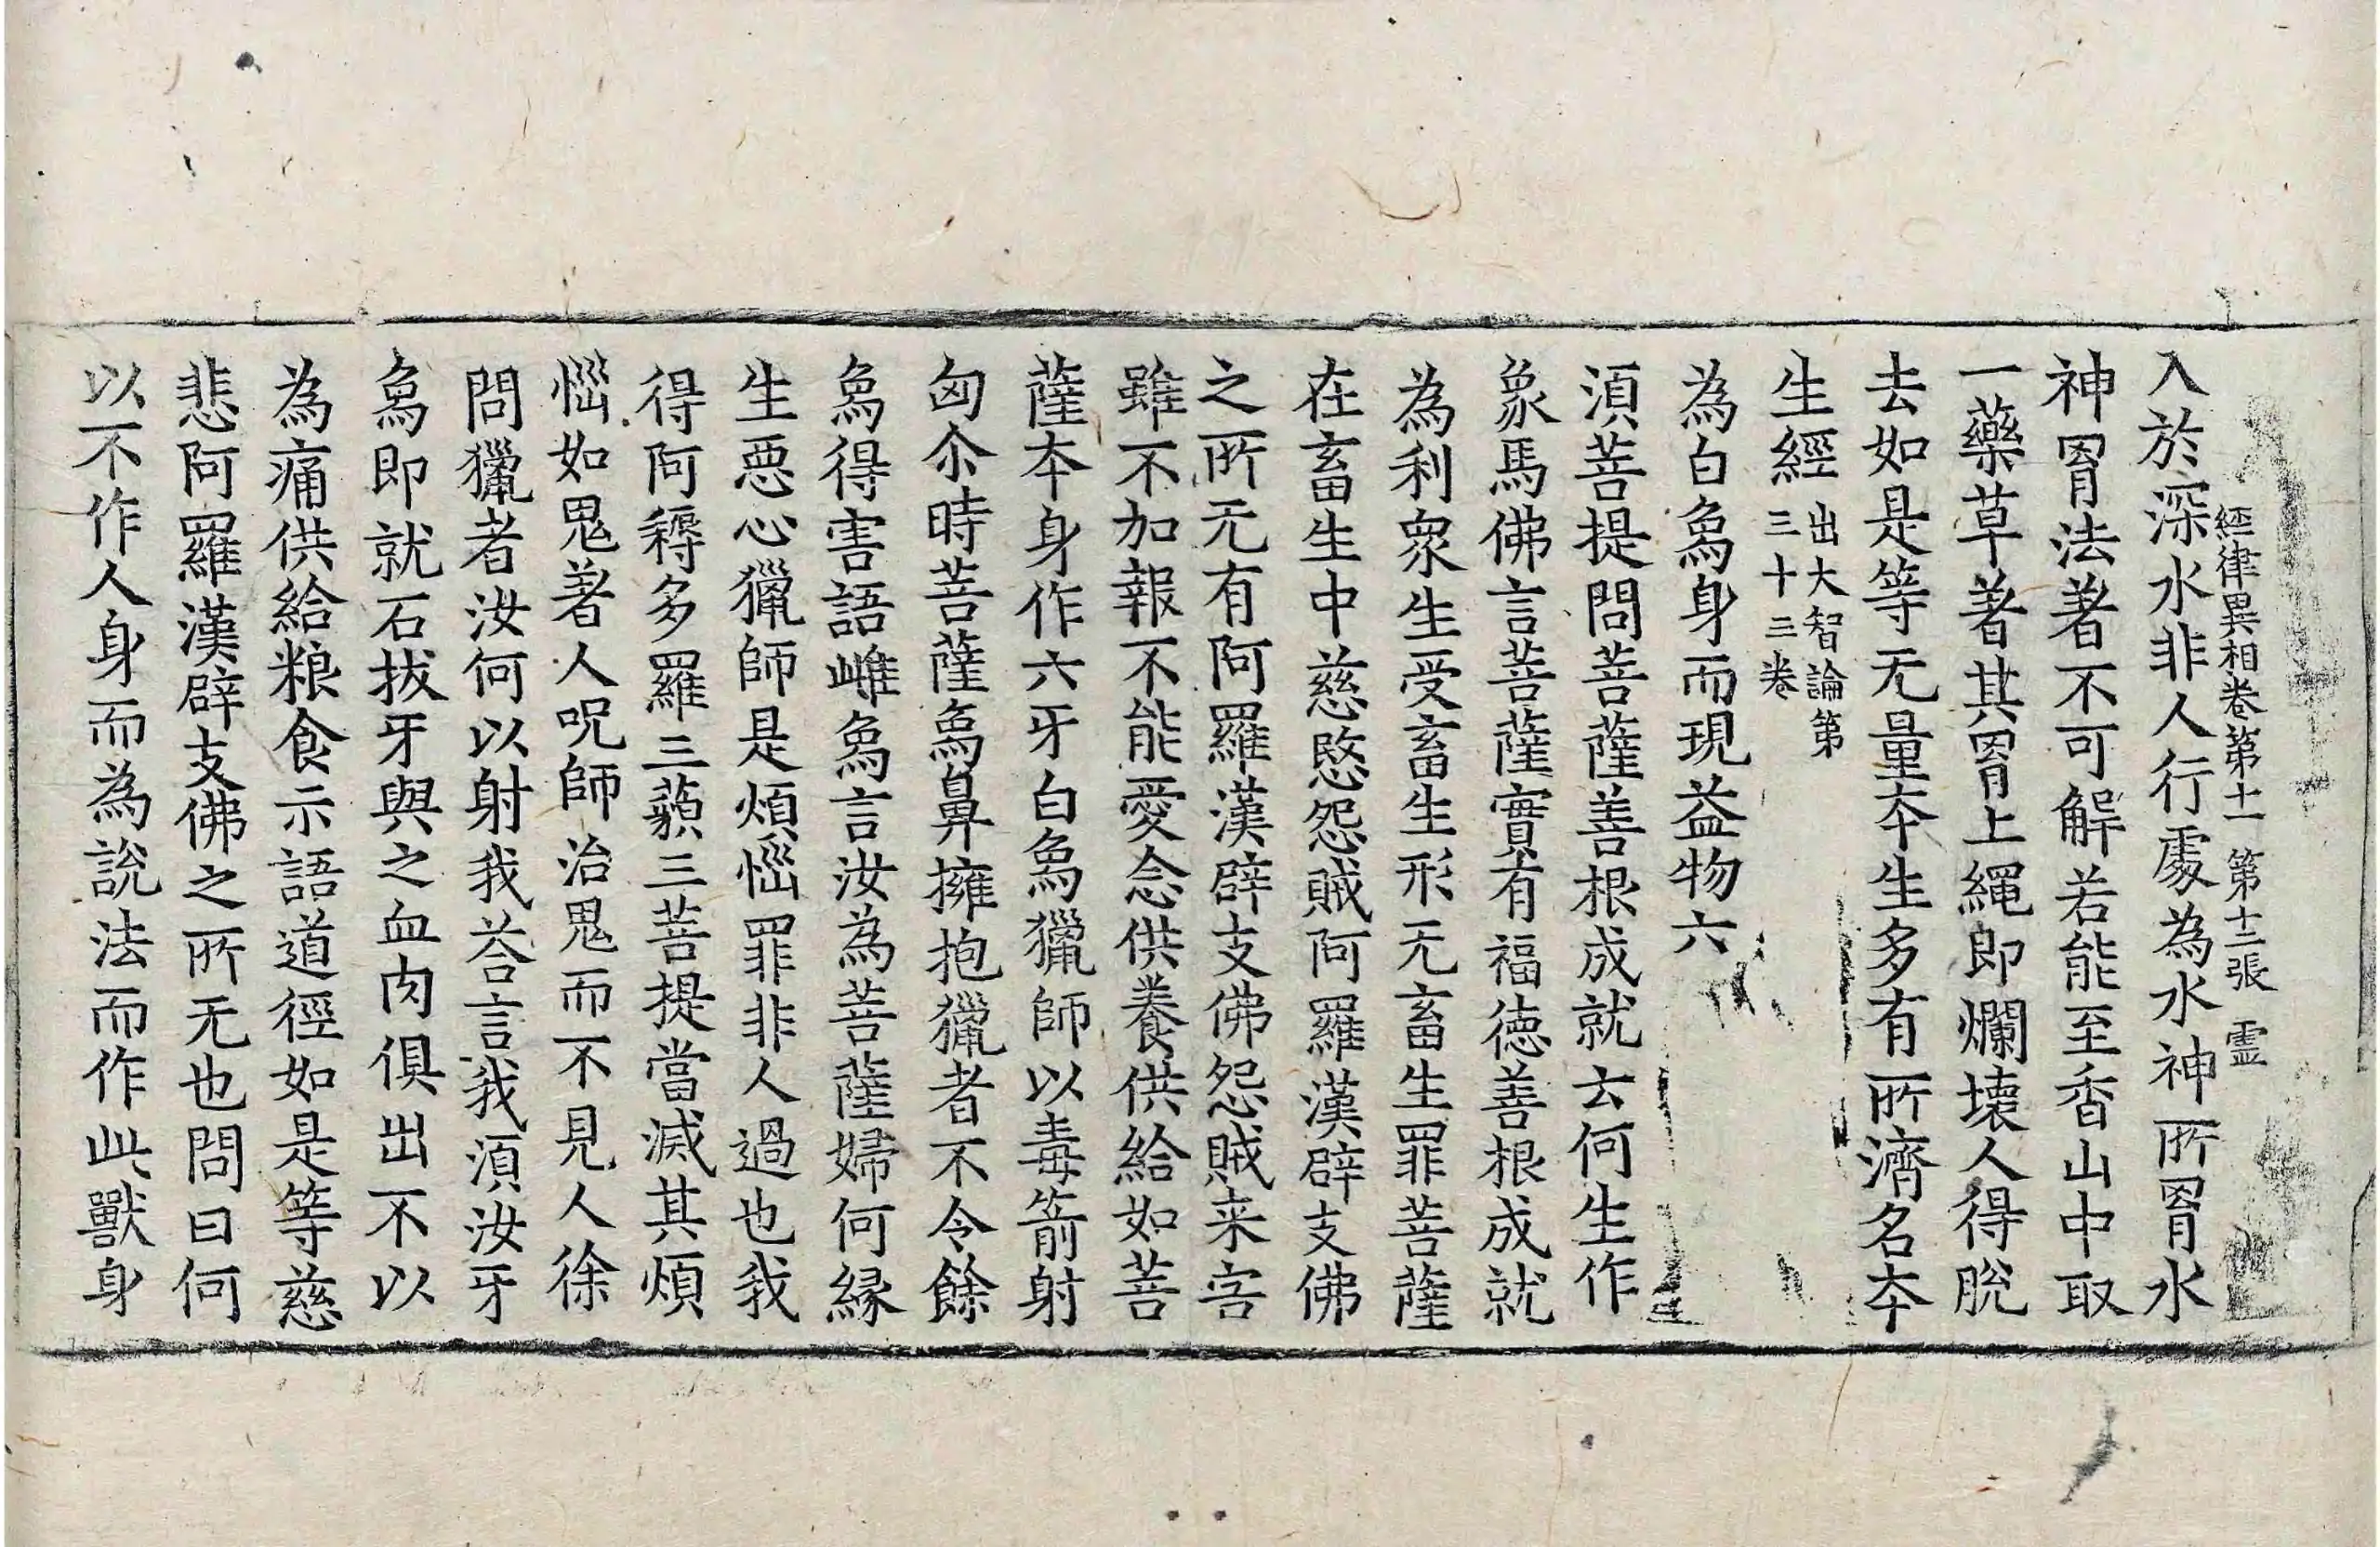 經律異相卷第十一　第十二張　靈
入於深水非人行處為水神所罥水
神罥法著不可解若能至香山中取
一藥草著其罥上繩即爛壞人得脫
去如是等无量夲生多有所濟名夲
生經出大智論第三十三卷
為白𤉢身而現益物六
湏菩提問菩薩善根成就云何生作
象馬佛言菩薩實有福德善根成就
為利衆生受畜生形无畜生罪菩薩
在畜生中慈愍怨賊阿羅漢辟支佛
之所无有阿羅漢辟支佛怨賊来害
雖不加報不能愛念供養供給如菩
薩夲身作六牙白𤉢獵師以毒箭射
匈尒時菩薩𤉢鼻擁抱獵者不令餘
𤉢得害語雌𤉢言汝為菩薩婦何緣
生惡心獵師是煩惱罪非人過也我
得阿耨多羅三藐三菩提當滅其煩
惱如鬼著人呪師治鬼而不見人徐
問獵者汝何以射我荅言我湏汝牙
𤉢即就石拔牙與之血肉俱出不以
為痛供給粮食示語道徑如是等慈
悲阿羅漢辟支佛之所无也問曰何
以不作人身而為說法而作此獸身